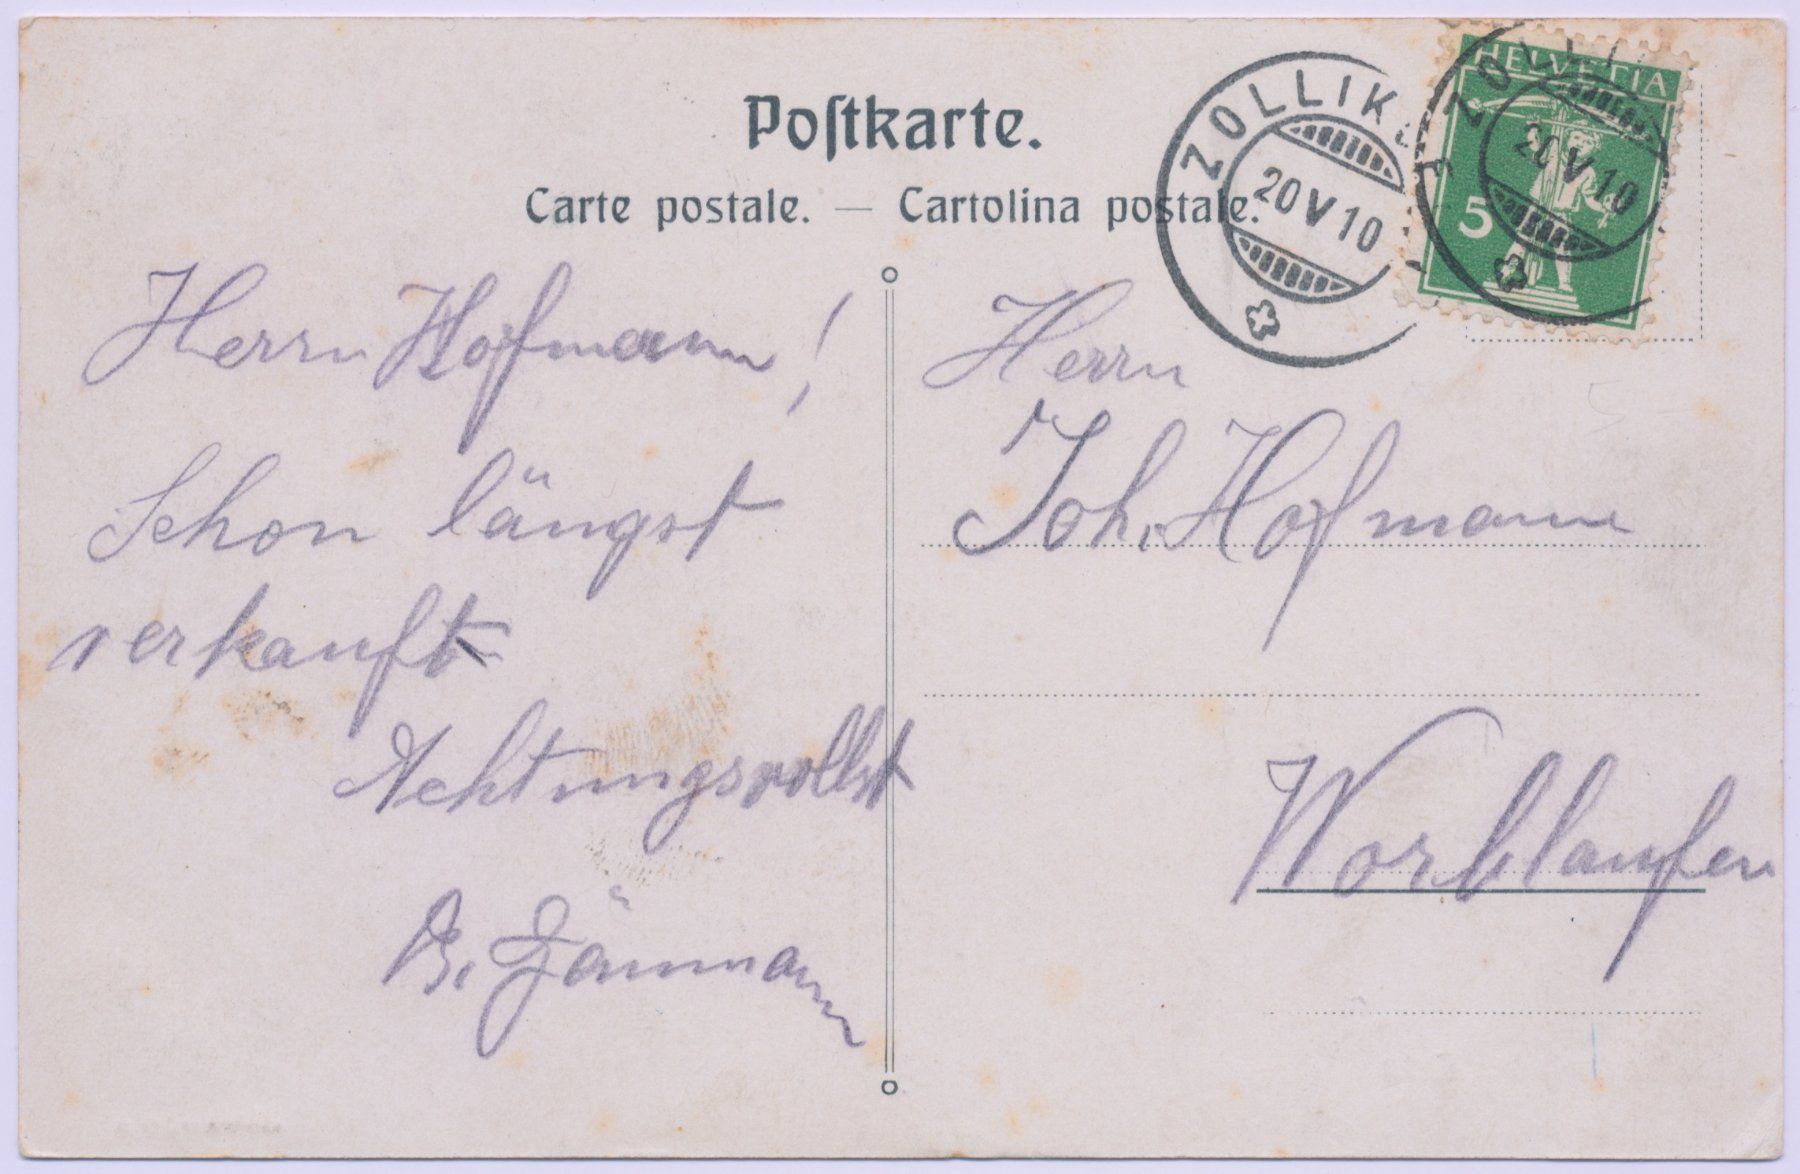 Postkarte.
Carte postale. — Cartolina postale.
ZOLLIK
20 V 10
HELVETIA
5
ZOLLI
20 V 10
Herrn Hofmann!
Schon längst
verkauft
Achtungsvollst
Herrn
Joh. Hofmann
Worblaufen